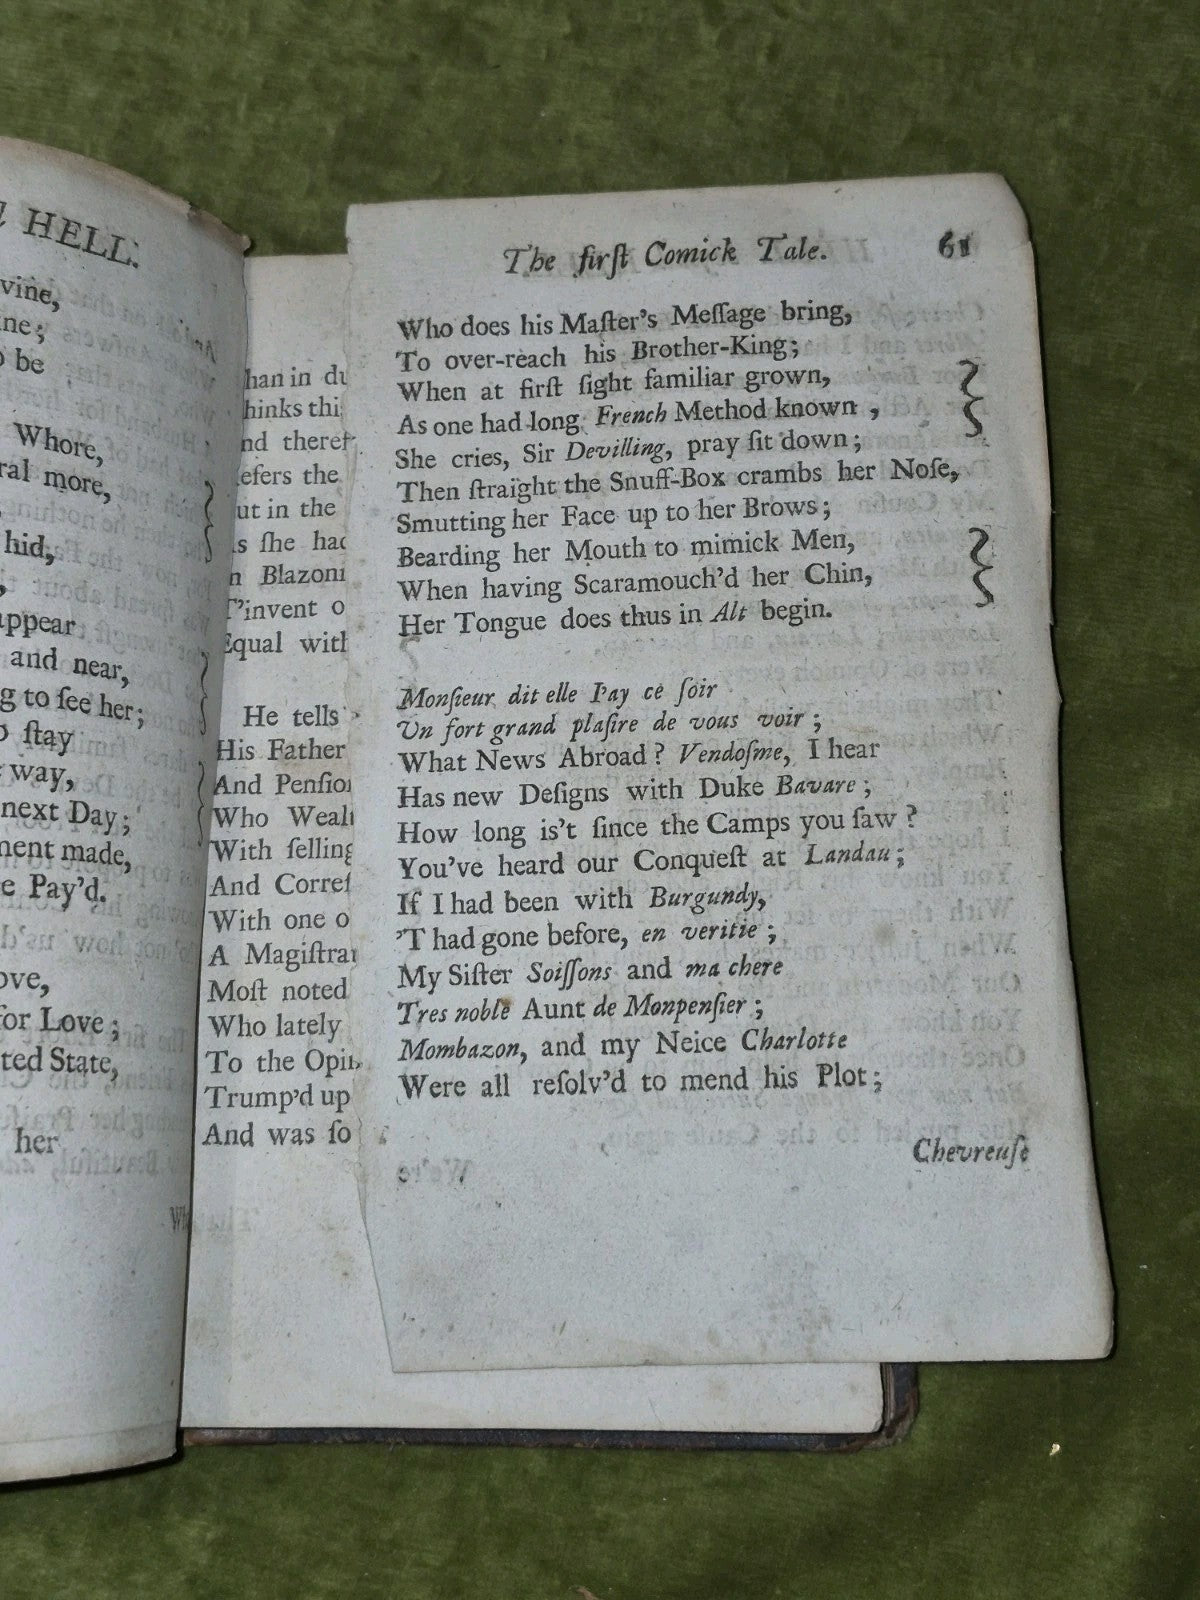 HELL.
vine,
ne;
be
Whore,
ral more,
hid,
appear
and near,
g to ſee her;
ſtay
way,
next Day;
ment made,
e Pay'd.
ove,
for Love;
ted State,
her
han in du
hinks thi
nd theref
efers the
ut in the
s ſhe had
n Blazoni
T'invent o
Equal with
He tells
His Father
And Penſio
Who Wealt
With ſelling
And Correſ
With one o
A Magiſtrat
Moſt noted
Who lately
To the Opin
Trump'd up
And was ſo
The firſt Comick Tale. 61
Who does his Maſter's Meſſage bring,
To over-reach his Brother-King;
When at firſt ſight familiar grown,
As one had long French Method known,
She cries, Sir Devilling, pray ſit down;
Then ſtraight the Snuff-Box crambs her Noſe,
Smutting her Face up to her Brows;
Bearding her Mouth to mimick Men,
When having Scaramouch'd her Chin,
Her Tongue does thus in Alt begin.
Monſieur dit elle I'ay ce ſoir
Un fort grand plaſire de vous voir;
What News Abroad? Vendoſme, I hear
Has new Deſigns with Duke Bavare;
How long is't ſince the Camps you ſaw?
You've heard our Conqueſt at Landau;
If I had been with Burgundy,
'T had gone before, en veritie;
My Siſter Soiſſons and ma chere
Tres noble Aunt de Monpenſier;
Mombazon, and my Neice Charlotte
Were all reſolv'd to mend his Plot;
Chevreuſe